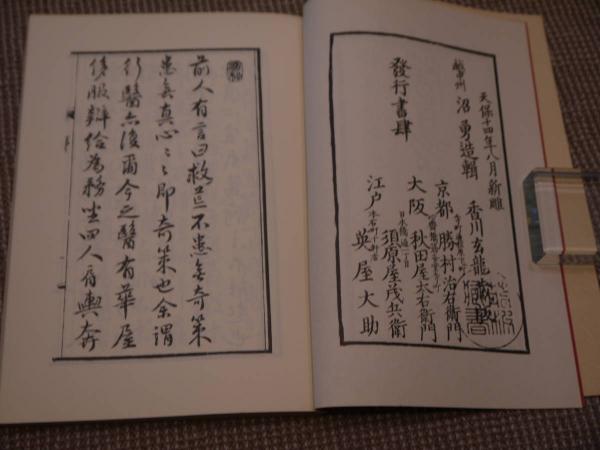 天保十四年八月新雕
越中州 沼勇造輯 香川玄龍蔵
發行書肆
京都 勝村治右衛門
大阪 秋田屋太右衛門
日本橋通一丁目
須原屋茂兵衛
江戸
英屋大助
前人有言曰救荒不患無奇策
患無真心ミミ即奇策也余謂
行醫亦復爾今之醫有華屋
侈服辯給為務坐四人肩輿奔